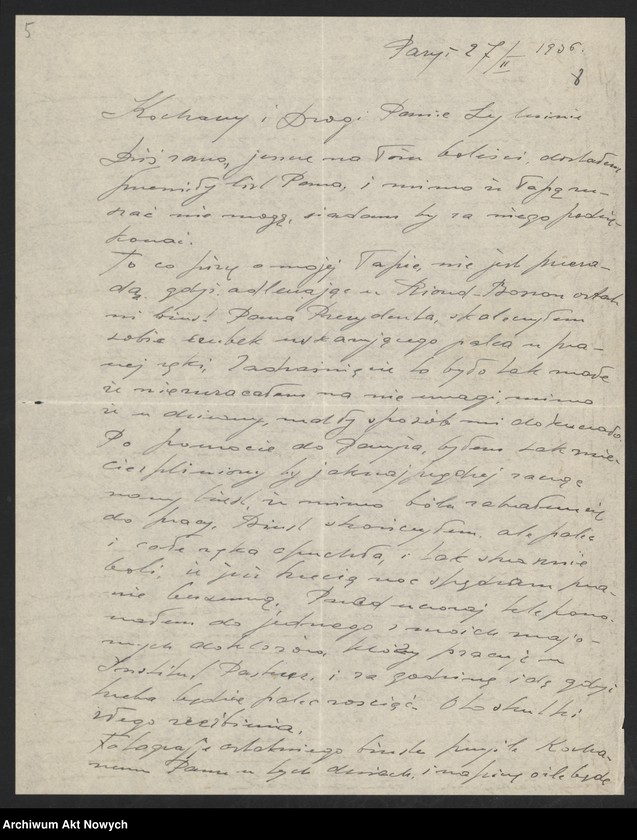 5
Paryż 27/II 1936.
8
Kochany i Drogi Panie Sylwinie
Dziś rano, jeszcze na łożu boleści, dostałem
przemiły list Pana, i mimo iż łapą ru-
szać nie mogę, siadam by za niego podzię-
kować.
To co piszę o mojej łapie, nie jest przesa-
dą, gdyż odlewając w Riond-Bosson ostat-
ni biust Pana Prezydenta, skaleczyłem
sobie czubek wskazującego palca u pra-
wej ręki, Zadraśnięcie to było tak małe
iż niezwracałem na nie uwagi, mimo
iż w dziwny, mdły sposób mi dokuczało.
Po powrocie do Paryża, byłem tak znie-
cierpliwiony by jaknajprędzej zacząć
nowy biust, iż mimo bólu zabrałem się
do pracy. Biust skończyłem, ale palec
i cała ręka spuchła, i tak strasznie
boli, iż już trzecią noc spędzam pra-
wie bezsenną. Przed wczoraj telefono-
wałem do jednego z moich znajo-
mych doktorów, który pracuje w
Institut Pasteur, i za godzinę idę gdyż
trzeba będzie palec rosciąć. Oto skutki
złego
Fotografje ostatniego biustu prześlę Kocha-
nemu Panu w tych dniach, i napiszę o ile będę
Archiwum Akt Nowych